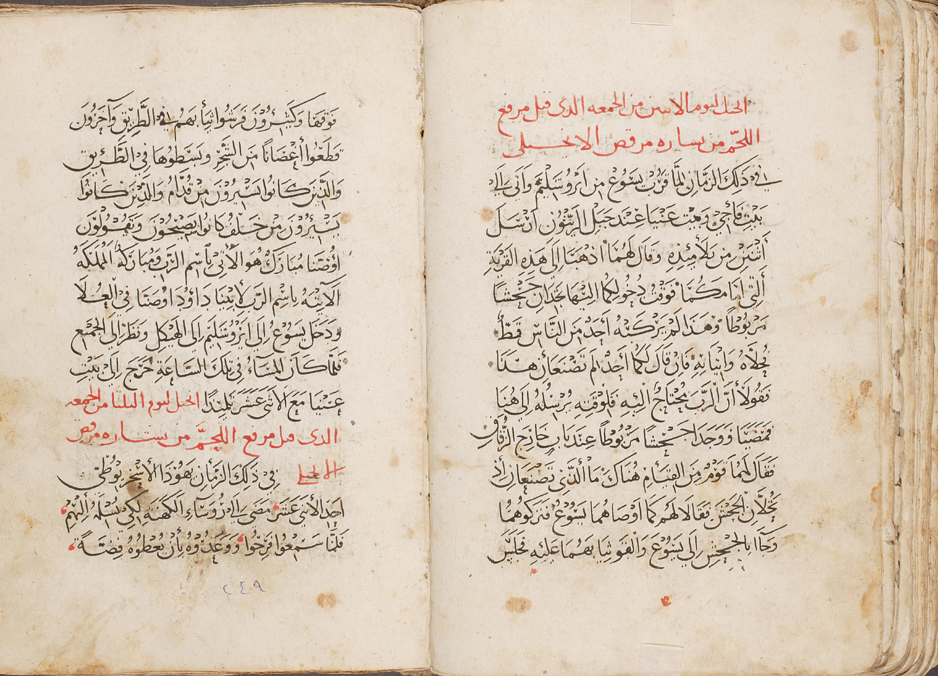 انجيل ليوم الاثنين من الجمعه الذي قبل مرفع
اللحم من بشاره مرقص الانجيلي
في ذلك الزمان لما قرب يسوع من اروشليم واتى الى
بيت فاجي وبيت عنيا عند جبل الزيتون ارسل
اثنين من تلاميذه وقال لهما اذهبا الى هذه القرية
التي امامكما فوقت دخولكما اليها تجدان جحشًا
مربوطًا وهذا لم يركبه احد من الناس قط
فحلاه واتيا به فان قال لكما احد لم تصنعان هذا
فقولا ان الرب يحتاج اليه فلوقته يرسله الى هنا
فمضيا ووجدا جحشًا مربوطًا عند باب خارج الزقاق
فقال لهما قوم من القيام هناك ما الذي تصنعان اذ
تحلان الجحش فقالا لهم كما اوصاهما يسوع فتركوهما
وجآا بالجحش الى يسوع والقو ثيابهما عليه فجلس
فوقها وكثيرون فرشوا ثيابهم في الطريق وآخرون
قطعوا أغصانًا من الشجر وبسطوها في الطريق
والذين كانوا يسيرون من قدام والذين كانوا
يسيرون من خلف كانوا يصيحون ويقولون
اوصنا مبارك هو الآتي بآسم الرب ومباركة المملكه
الآتية باسم الرب لابينا داوود اوصنا في العلا
ودخل يسوع الى اروشليم الى الهيكل ونظر الى الجميع
فلما كان المساء في تلك الساعة خرج الى بيت
عنيا مع الاثني عشر تلميذا انجيل ليوم الثلثا من الجمعه
الذي قبل مرفع اللحم من بشاره مرقص
الانجيلي في ذلك الزمان يهوذا الاسخريوطي
احد الاثني عشر مضى الى رؤساء الكهنه لكي يسلمه اليهم
فلما سمعوا فرحوا ووعدوه بأن يعطوه فضة
٢٤٩